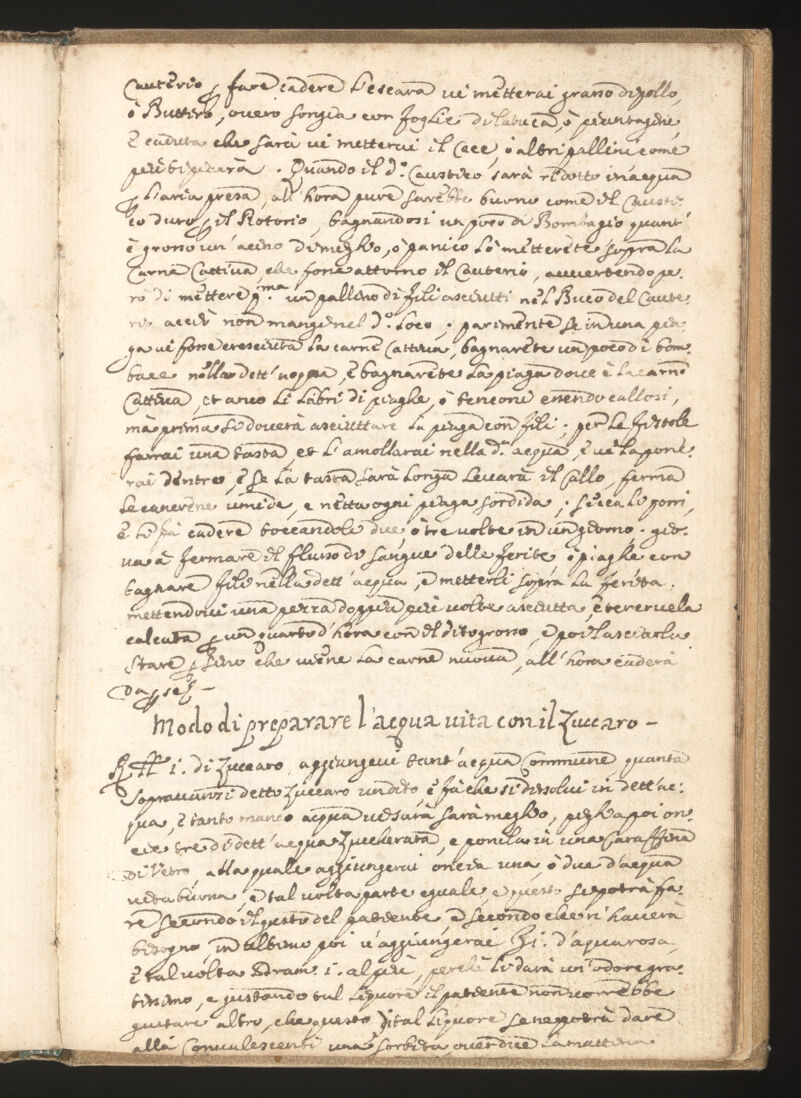 Cauterio, p fare cadere l'escara vi metterai grasso di pollo,
ò Buttiro, overo songia con foglie di latuca, ò piantagine,
è caduta che sarà vi metterai il Cece, ò altri pallini come
più ti piacerà. Quando il d.º Caustico sarà ridotto in acqua
p l'aria presa, all'hora pure sarebbe buono come il Causti-
co duro p il Rotorio, bagnandosi un poco di Bombagio quant'
è grosso un' acino di meglio, ò panico lo metterete sopra la
Carne Cattiva, che fosse attorno il Cauterio, avvertendo pe-
rò di mettere p.ma un pallino di fili asciutti nel Buco del Caute-
rio acciò non mangi nel d.º loco; parimente se in una pia-
ga vi fosse cresciuta la carne cattiva, bagnarete un poco di bom-
bace nella dett' acqua, è bagnarete la piaga dove è la carne
Cattiva, et anco li labri di piaghe, ò tenconi essendo callosi,
mà prima si doverà asciuttare la piaga con fili. per le fistole
farrai una tasta et l'amollarai nella d.ª acqua, è ve la pone-
rai dentro, è se la tasta sarà longa levarà il Callo, ferma
le cancrene umide, e netta ogni piaga sordida; secca li porri,
è li fà cadere toccandoli due, ò tre volte in un giorno. gio-
va à fermare il flusso di sangue delle ferite, ò piaghe con
bagnare fili nella dett' acqua, è metterli sopra la ferita,
mettendovi una pezza doppia più volte asciutta, è tenervela
calcata p un quarto d'hora con il dito grosso, è poi lasciarla
stare p fino che viene la carne nuova, all'hora caderà
Da p se –
Modo di preparare l'acqua vita con il Zuccaro –
R. ℔ i. di Zuccaro, aggiungevi tant' acqua Commune quanta
sopravanzi detto Zuccaro un dito, è fà che si dissolvi in dett' ac-
qua, è tanto manco acqua vi sarà sarà meglio, piglia poi on-
cie tre di dett' acqua Zuccherata, e ponila in una Caraffina
di Vetro, alla quale aggiungerai oncia una, ò due d'acqua
vita buona, è tal volta parte eguale, e questo si potrà fa-
re secondo il gusto del patiente è secondo che n'haverà
bisogno, in ultimo poi v'aggiungerai ʒ i. d'acqua rosa,
è tal volta Dram. i. al più, perchè li darà un'odore gra-
tissimo, e gustando tal liquore il patiente non vorrebbe
gustare altro, che questo di tal liquore se ne potrà dare
alli Convalescenti una sorbita, ò due la mattina